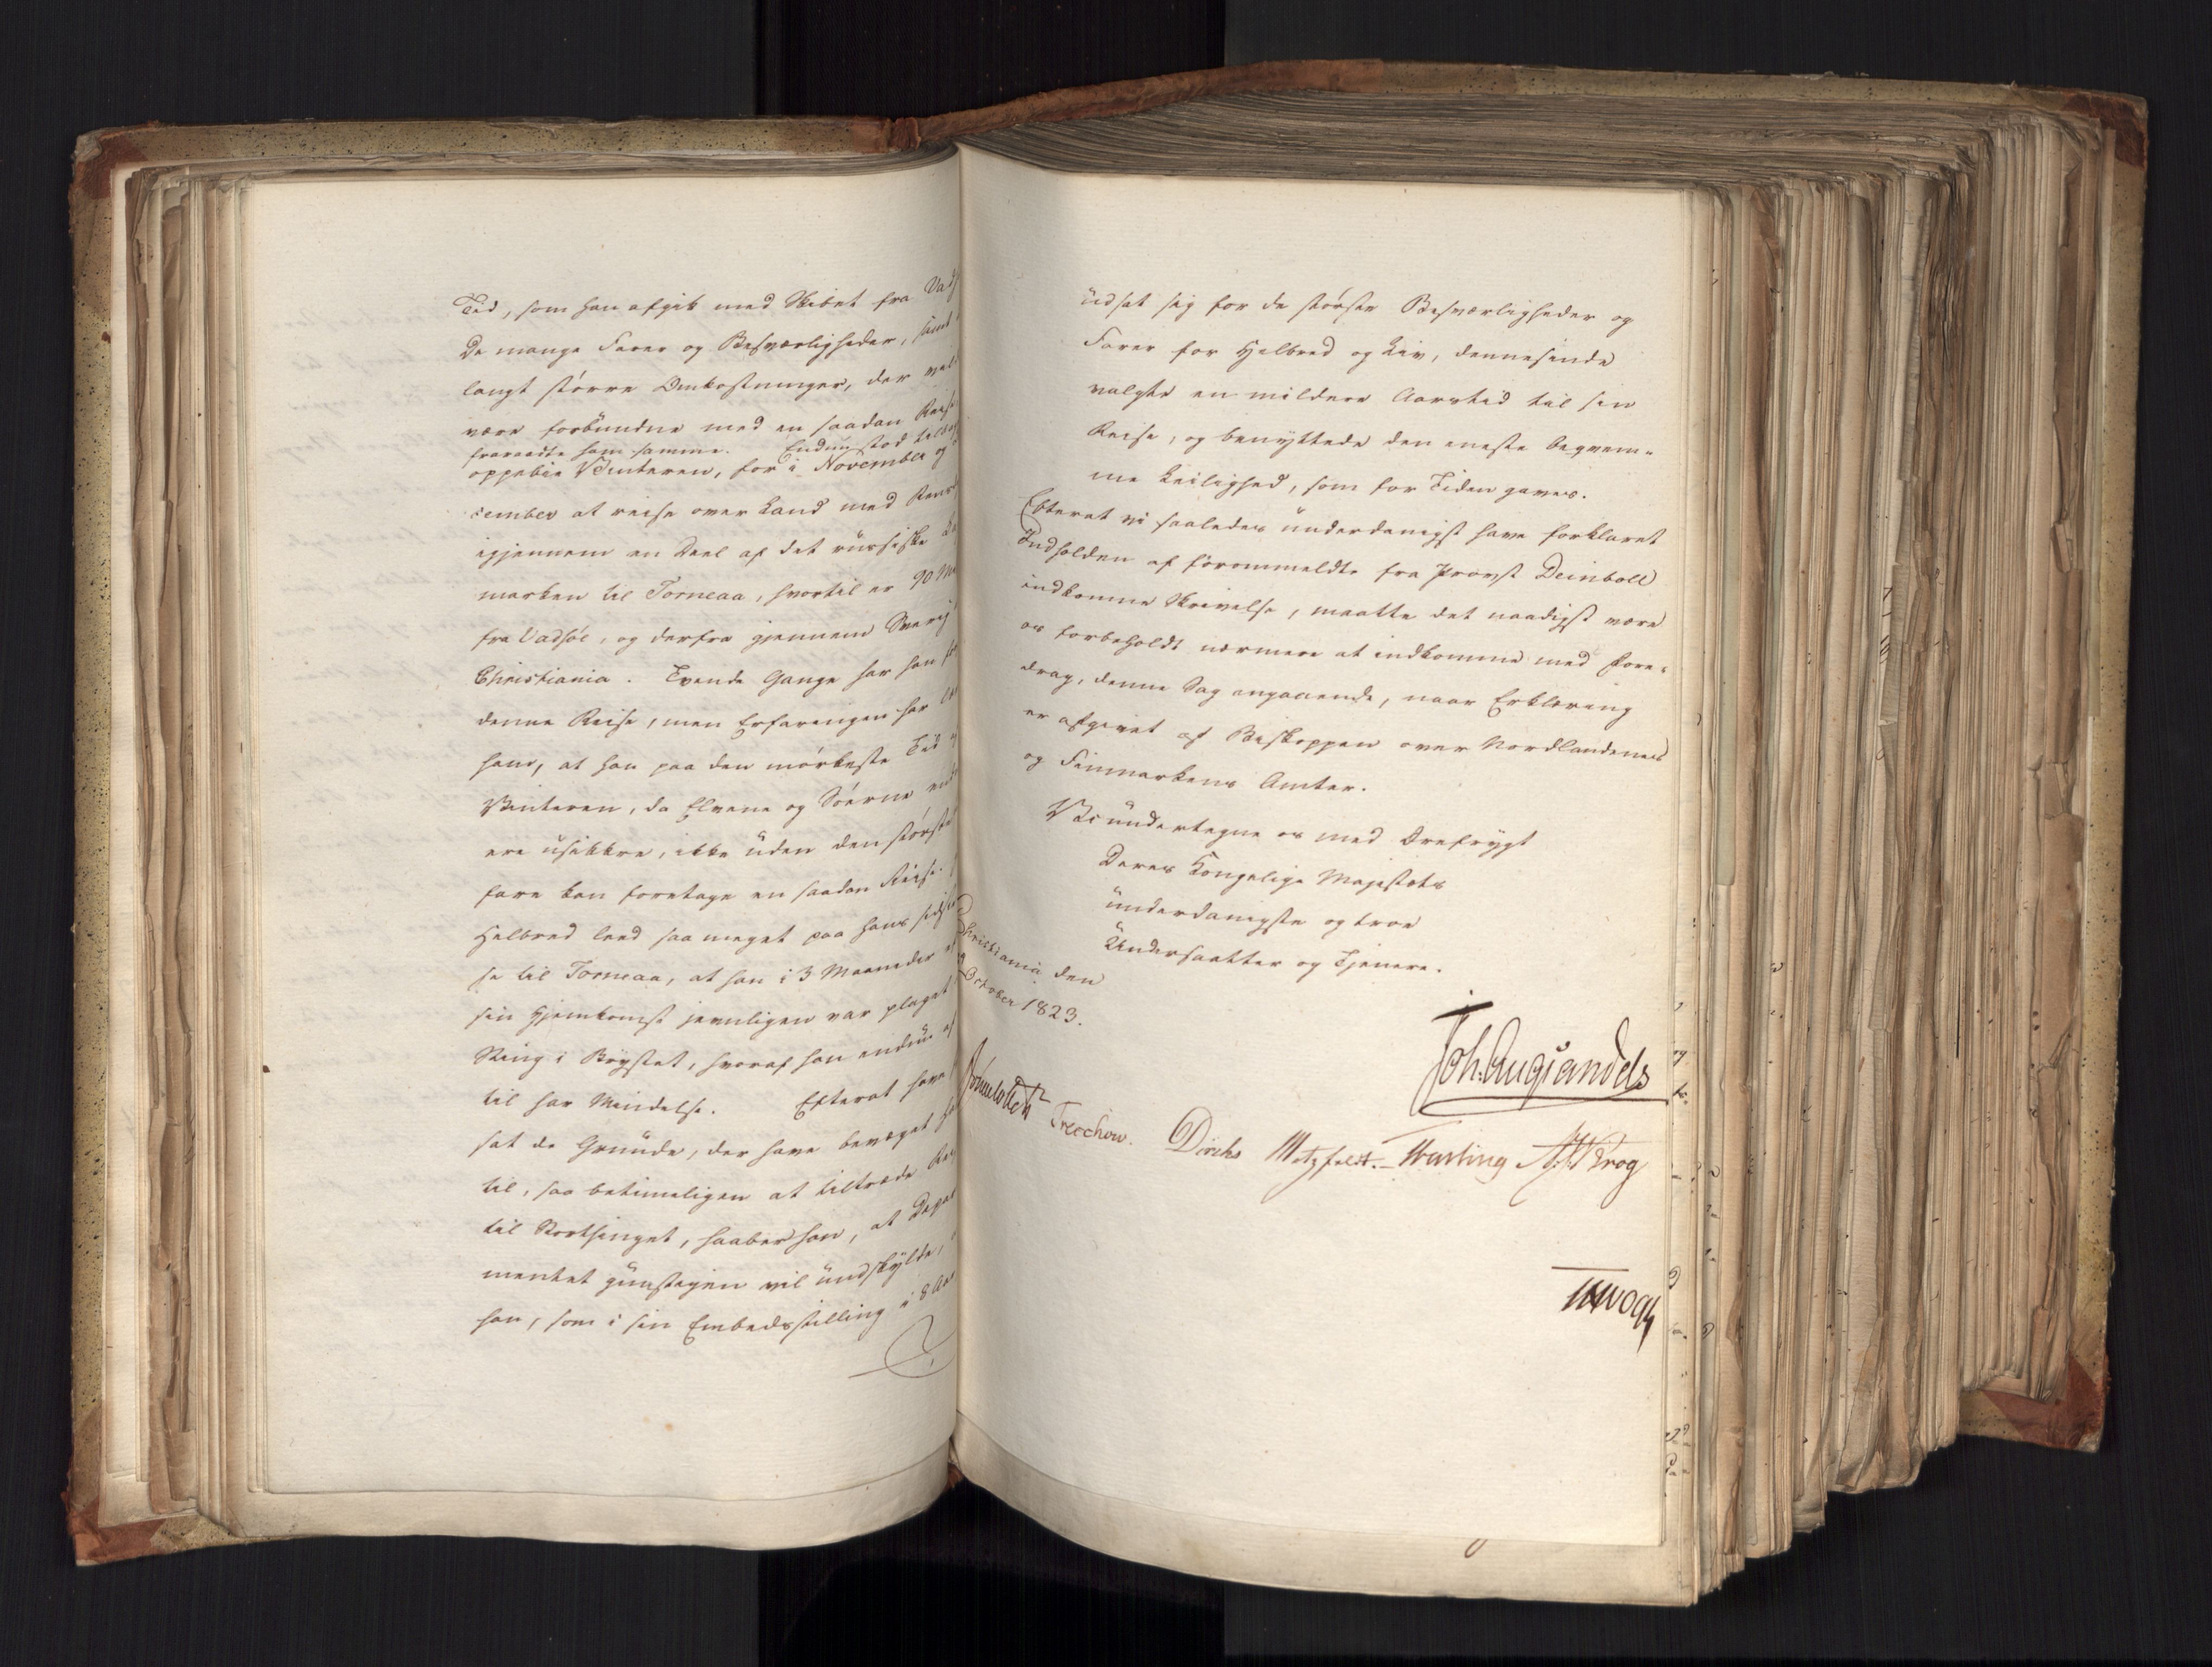 Tid, som han afgik med Skibet fra Vads
de mange Farer og Besværligheder, samt
langt større Omkostninger, der vel
være forbundne med en saadan Reise
fraraadte ham samme. Endnu stod tilbage
oppebie Vinteren, for i November og
cember at reise over Land med Rens
igjennem en Deel af det russiske
marken til Torneaa, hvortil er 90 M
fra Vadsøe, og derfra gjennem Sverig
Christiania. Tvende Gange har han
denne Reise, men Erfaringen har
ham, at han paa den mørkeste Tid
Vinteren, da Elvene og Søerne
ere usikkre, ikke uden den største
fare kan foretage en saadan Reise.
Helbred leed saa meget paa hans sidste
se til Torneaa, at han i 3 Maaneder
sin Hjemkomst jevnligen var plaget
Sting i Brystet, hvoraf han endnu
til har Mindelse. Efterat have
sat de Grunde, der have bevæget
til, saa betimeligen at tiltræde
til Storthinget, haaber han, at Depar
mentet gunstigen vil undskylde,
han, som i sin Embedsstilling i 8 Aar
udsat sig for de største Besværligheder og
Farer for Helbred og Liv, dennesinde
valgte en mildere Aarstid til sin
Reise, og benyttede den eneste beqvem-
me Leilighed, som for Tiden gaves.
Efterat vi saaledes underdanigst have forklaret
Indholden af førommeldte fra Provst Deinboll
indkomne Skrivelse, maatte det naadigst være
os forbeholdt nærmere at indkomme med Fore-
drag, denne Sag angaaende, naar Erklæring
er afgivet af Biskoppen over Nordlandenes
og Finmarkens Amter.
Vi undertegne os med Ærefrygt
Deres Kongelige Majestæts
underdanigste og troe
Undersaatter og Tjenere.
Christiania den
October 1823.
Joh. Aug Sandels
Sommerfeldt
Treschow.
Diriks Motzfeldt. Krog